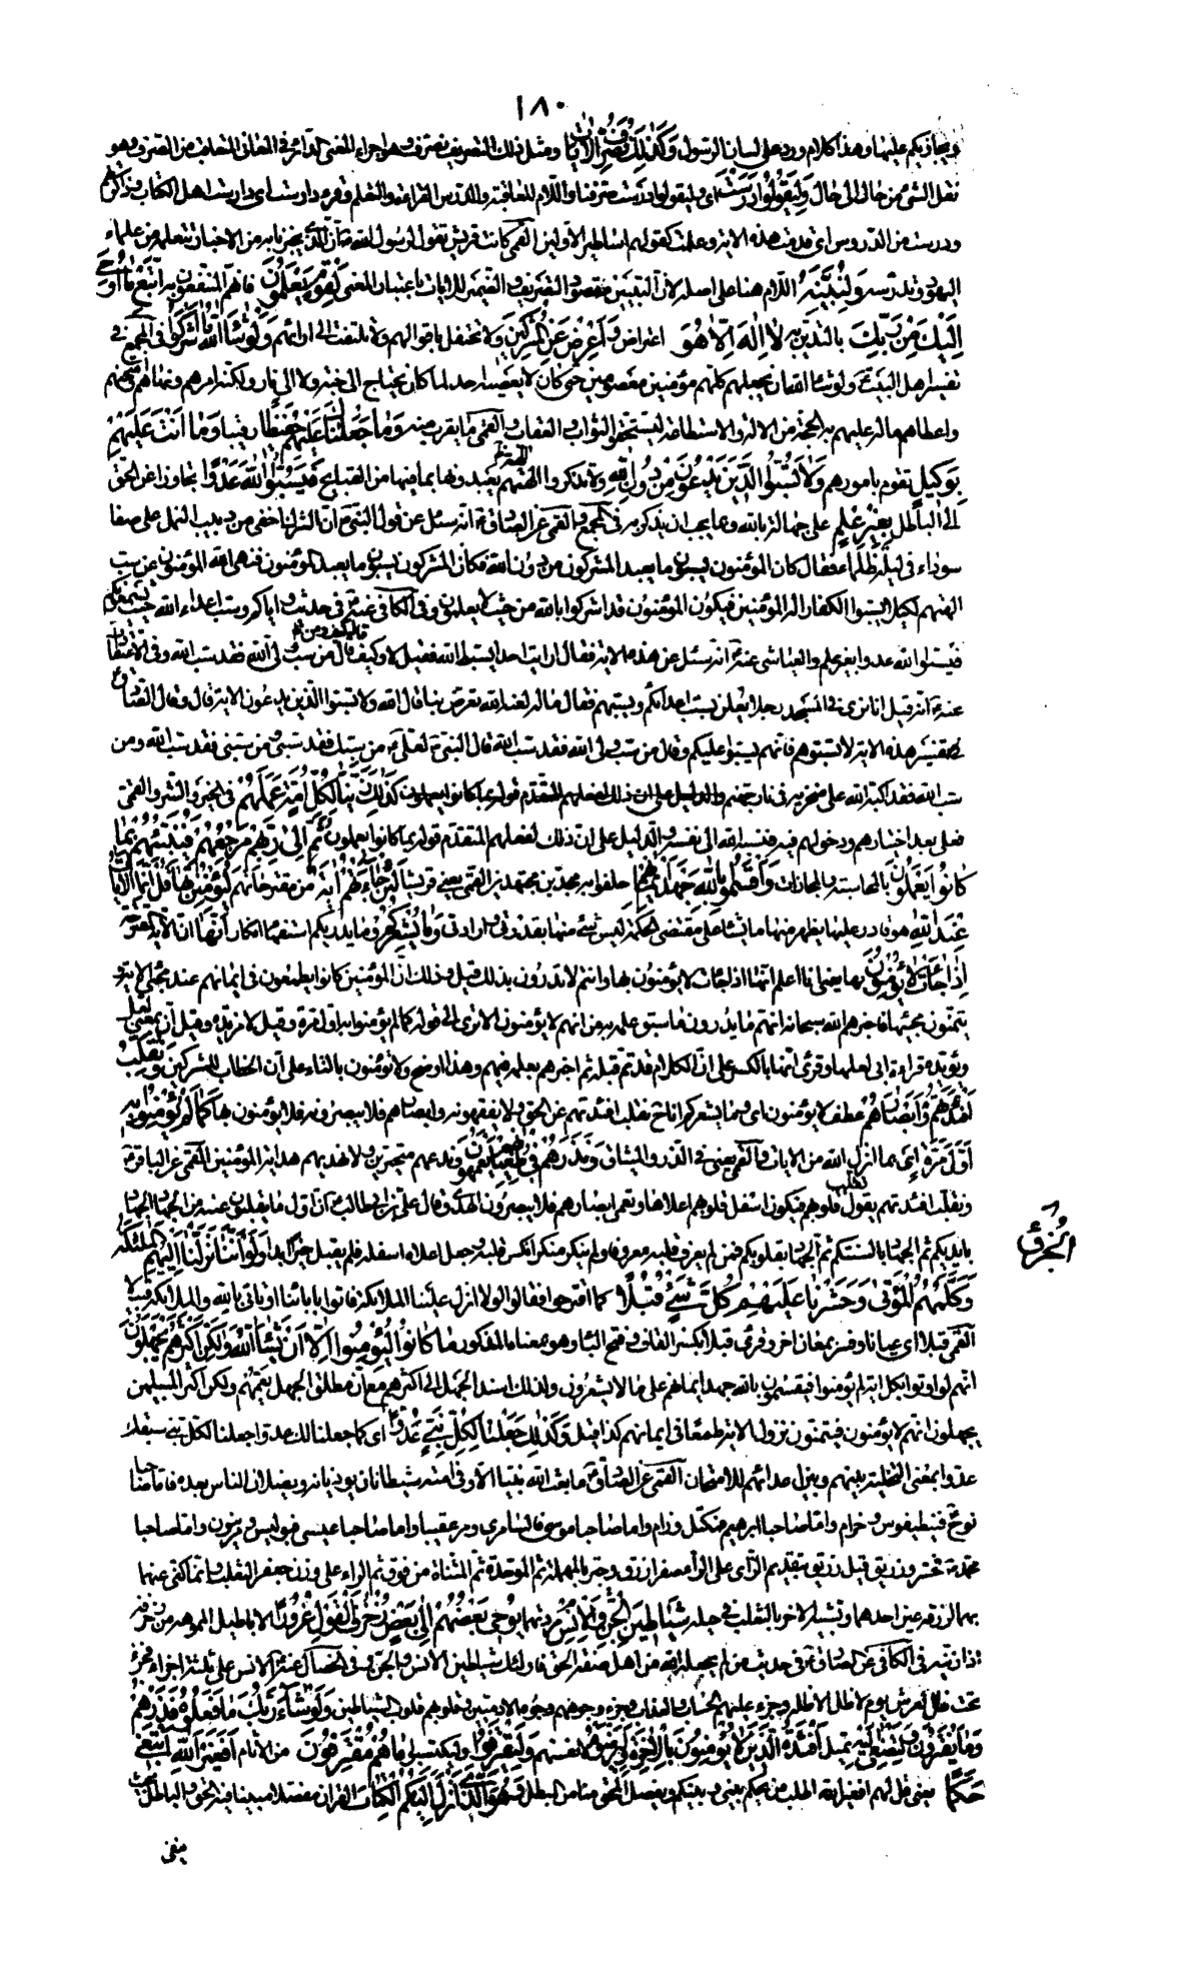 ١٨٠
ويجازيكم عليها وهذا كلام ورد على لسان الرسول وَكَذلِكَ نُصَرِّفُ الْآياتِ ومثل ذلك التصريف نصرف وهو اجراء المعنى الدائر في المعاني المتعاقبة من الصرف وهو
نقل الشيء من حال الى حال وَلِيَقُولُوا دَرَسْتَ اى وليقولوا درست صرفنا واللام للعاقبة والدرس القراءة والتعلم وقرء دارست اى دارست اهل الكتاب وذاكرتهم
ودرست من الدروس اى قدمت هذه الاية وعفت كقولهم اساطير الاولين القمى كانت قريش تقول لرسول الله ص ان الذي تخبرنا به من الاخبار تتعلمه من علماء
اليهود وتدرسه وَلِنُبَيِّنَهُ اللام هنا على اصله لان التبيين مقصود التصريف والضمير للايات باعتبار المعنى لِقَوْمٍ يَعْلَمُونَ فانهم المنتفعون به اتَّبِعْ ما أُوحِيَ
إِلَيْكَ مِنْ رَبِّكَ بالتدين به لا إِلهَ إِلَّا هُوَ اعتراض وَأَعْرِضْ عَنِ الْمُشْرِكِينَ ولا تحتفل باقوالهم ولا تلتفت الى ارائهم وَلَوْ شاءَ اللَّهُ ما أَشْرَكُوا في المجمع في
تفسير اهل البيت ع ولو شاء الله ان يجعلهم كلهم مؤمنين معصومين حتى كان لا يعصيه احد لما كان يحتاج الى جنة ولا الى نار ولكنه امرهم ونهاهم وامتحنهم
واعطاهم ما له عليهم به الحجة من الالة والاستطاعة ليستحقوا الثواب والعقاب والقمى ما يقرب منه وَما جَعَلْناكَ عَلَيْهِمْ حَفِيظاً رقيبا وَما أَنْتَ عَلَيْهِمْ
بِوَكِيلٍ تقوم بامورهم وَلا تَسُبُّوا الَّذِينَ يَدْعُونَ مِنْ دُونِ اللَّهِ ولا تذكروا الهتهم التي يعبدونها بما فيها من القبايح فَيَسُبُّوا اللَّهَ عَدْواً تجاوزا عن الحق
الى الباطل بِغَيْرِ عِلْمٍ على جهالة بالله وبما يجب ان يذكر به في المجمع والقمى عن الصادق ع انه سئل عن قول النبي ص ان الشرك اخفى من دبيب النمل على صفا
سوداء في ليلة ظلماء فقال كان المؤمنون يسبون ما يعبد المشركون من دون الله فكان المشركون يسبون ما يعبد المؤمنون فنهى الله المؤمنين عن سب
الهتهم لكيلا يسبوا الكفار اله المؤمنين فيكون المؤمنون قد اشركوا بالله من حيث لا يعلمون وفي الكافي عنه ع في حديث واياكم وسب اعداء الله حيث يسمعونكم
فيسبوا الله عدوا بغير علم والعياشي عنه ع انه سئل عن هذه الاية فقال ارايت احدا يسب الله فقيل لا وكيف قال من سب ولى الله فقد سب الله وفي الاعتقادات
عنه ع انه قيل انا نرى في المسجد رجلا يعلن بسب اعدائكم ويسبهم فقال ماله لعنه الله تعرض بنا قال الله ولا تسبوا الذين يدعون الاية قال وقال الصادق ع
في تفسير هذه الاية لا تسبوهم فانهم يسبوا عليكم وقال من سب ولى الله فقد سب الله قال النبي ص لعلى ع من سبك فقد سبني ومن سبني فقد سب الله ومن
سب الله فقد اكبه الله على منخريه في نار جهنم والدليل على ان ذلك لفعلهم المتقدم قوله بما كانوا يعملون كَذلِكَ زَيَّنَّا لِكُلِّ أُمَّةٍ عَمَلَهُمْ في الخير والشر والقمى
فعلى بعد اختبارهم ودخولهم فيه فنسبه الله الى نفسه والدليل على ان ذلك لفعلهم المتقدم قوله بما كانوا يعملون ثُمَّ إِلى رَبِّهِمْ مَرْجِعُهُمْ فَيُنَبِّئُهُمْ بِما
كانُوا يَعْمَلُونَ بالمحاسبة والمجازات وَأَقْسَمُوا بِاللَّهِ جَهْدَ أَيْمانِهِمْ حلفوا به مجدين مجتهدين القمى يعنى قريشا لَئِنْ جاءَتْهُمْ آيَةٌ من مقترحاتهم لَيُؤْمِنُنَّ بِها قُلْ إِنَّمَا الْآياتُ
عِنْدَ اللَّهِ هو قادر عليها يظهر منها ما يشاء على مقتضى الحكمة ليس شيء منها بقدرتي وارادتي وَما يُشْعِرُكُمْ وما يدريكم استفهام انكار أَنَّها ان الاية المقترحة
إِذا جاءَتْ لا يُؤْمِنُونَ بها يعنى انا اعلم انها اذا جاءت لا يؤمنون بها وانتم لا تدرون بذلك قيل وذلك ان المؤمنين كانوا يطمعون في ايمانهم عند مجيء الاية و
يتمنون مجيئها فاخبرهم الله سبحانه انهم ما يدرون ما سبق علمه به من انهم لا يؤمنون الا ترى الى قوله كما لم يؤمنوا به اول مرة وقيل لا مزيدة وقيل ان بمعنى لعل
ويؤيده قراءة ابى لعلها وقرئ انها بالكسر على ان الكلام قد تم قبله ثم اخبرهم بعلمه فيهم وهذا اوضح ولا تؤمنون بالتاء على ان الخطاب للمشركين وَنُقَلِّبُ
أَفْئِدَتَهُمْ وَأَبْصارَهُمْ عطف لا يؤمنون اى وما يشعركم انا ح نقلب افئدتهم عن الحق فلا يفقهونه وابصارهم فلا يبصرونه فلا يؤمنون بها كَما لَمْ يُؤْمِنُوا بِهِ
أَوَّلَ مَرَّةٍ اى بما انزل الله من الايات والقمى يعنى في الذر والميثاق وَنَذَرُهُمْ فِي طُغْيانِهِمْ يَعْمَهُونَ وندعهم متحيرين ولا نهديهم هداية المؤمنين القمى عن الباقر ع
ونقلب افئدتهم يقول ننكس قلوبهم فيكون اسفل قلوبهم اعلاها ونعمى ابصارهم فلا يبصرون الهدى وقال على بن ابى طالب ع ان اول ما يقلبون عنه من الجهاد الجهاد
بايديكم ثم الجهاد بالسنتكم ثم الجهاد بقلوبكم فمن لم يعرف قلبه معروفا ولم ينكر منكرا نكس قلبه وجعل اعلاه اسفله فلم يقبل خيرا ابدا وَلَوْ أَنَّنا نَزَّلْنا إِلَيْهِمُ الْمَلائِكَةَ
الجزء ٨
وَكَلَّمَهُمُ الْمَوْتى وَحَشَرْنا عَلَيْهِمْ كُلَّ شَيْءٍ قُبُلًا كما اقترحوا فقالوا لولا انزل علينا الملائكة فاتوا بابائنا او تاتى بالله والملائكة قبيلا
القمى قبلا اى عيانا وفسر بمعان اخر وقرئ قبلا بكسر القاف وفتح الباء وهو بمعناه المذكور ما كانُوا لِيُؤْمِنُوا إِلَّا أَنْ يَشاءَ اللَّهُ وَلكِنَّ أَكْثَرَهُمْ يَجْهَلُونَ
انهم لو اوتوا بكل اية لم يؤمنوا فيقسمون بالله جهد ايمانهم على ما لا يشعرون ولذلك اسند الجهل الى اكثرهم مع ان مطلق الجهل يعمهم ولكن اكثر المسلمين
يجهلون انهم لا يؤمنون فيتمنون نزول الاية طمعا في ايمانهم كذا قيل وَكَذلِكَ جَعَلْنا لِكُلِّ نَبِيٍّ عَدُوًّا اى كما جعلنا لك عدوا جعلنا لكل نبي سبقك
عدوا بمعنى التخلية بينهم وبين اعدائهم للامتحان القمى عن الصادق ع ما بعث الله نبيا الا وفي امته شيطانان يوذيانه ويضلان الناس بعده فاما صاحبا
نوح ع فقنطيفوس وخرام واما صاحبا ابرهيم فمكثل ورزام واما صاحبا موسى فالسامري ومرعقيبا واما صاحبا عيسى فبولس ومريتون واما صاحبا
محمد ص فحبتر وزريق قيل زريق بتقديم الزاى على الراء مصغر ازرق وحبتر بالمهملة ثم الموحدة ثم المثناة من فوق ثم الراء على وزن جعفر الثعلب وانما كنى عنهما
بهما لزرقة عين احدهما وتشبيه الاخر بالثعلب في حيلته شَياطِينَ الْإِنْسِ وَالْجِنِّ مردتهما يُوحِي بَعْضُهُمْ إِلى بَعْضٍ زُخْرُفَ الْقَوْلِ غُرُوراً الاباطيل المموهة من زخرفه
اذا زينه في الكافي عن الصادق ع في حديث من لم يجعله الله من اهل صفة الحق فاولئك شياطين الانس والجن وفي الخصال عنه ع الانس على ثلثة اجزاء فجزء
تحت ظل العرش يوم لا ظل الا ظله وجزء عليهم الحساب والعذاب وجزء وجوههم وجوه الادميين وقلوبهم قلوب الشياطين وَلَوْ شاءَ رَبُّكَ ما فَعَلُوهُ فَذَرْهُمْ
وَما يَفْتَرُونَ وَلِتَصْغى إِلَيْهِ تميل أَفْئِدَةُ الَّذِينَ لا يُؤْمِنُونَ بِالْآخِرَةِ وَلِيَرْضَوْهُ لانفسهم وَلِيَقْتَرِفُوا وليكتسبوا ما هُمْ مُقْتَرِفُونَ من الاثام أَفَغَيْرَ اللَّهِ أَبْتَغِي
حَكَماً يعنى قل لهم افغير الله اطلب من يحكم بينى وبينكم ويفصل المحق منا من المبطل وَهُوَ الَّذِي أَنْزَلَ إِلَيْكُمُ الْكِتابَ القران مفصلا مبينا فيه الحق والباطل بحيث
ينفى